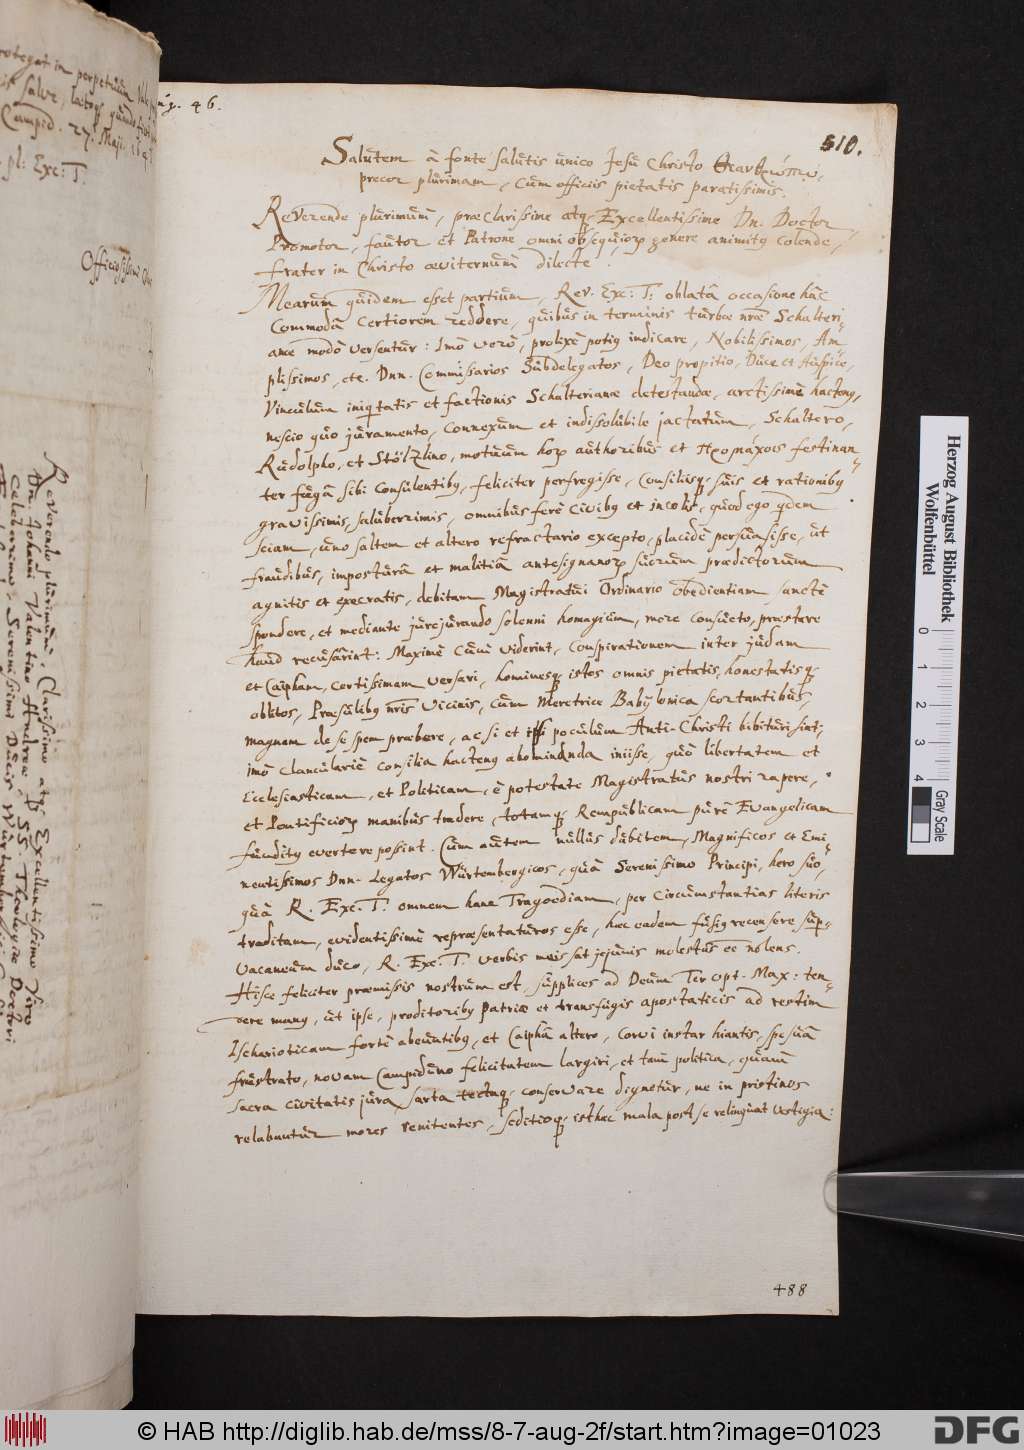 protegat in perpetuum
salve,
Campid. 27. Maji.
pl: Exc: T.
Officiosissimus
Reverendo plurimùm, Clarissimo atq; Excellentissimo Viro
Dn. Johanni Valentino Andreæ, SS. Theologiæ Doctori
Celeberrimo, Serenissimi Ducis
46.
510.
Salutem â fonte salutis ùnico Jesù Christo
precor plùrimam, cùm officiis pietatis paratissimis.
Reverende plurimùm, præclarissime atq; Excellentissime Dn. Doctor
Promotor, faùtor et Patrone omni obsequiorꝫ genere animitꝰ colende,
frater in Christo æviternùm dilecte.
Mearùm quidem esset partiùm, Rev. Exc: T: oblatâ occasione hâc
commodâ certiorem reddere, quibùs in terminis tùrbæ nr̄æ Schalteri-
anæ modò versentùr: Imò verò, prolixè potiꝰ indicare, Nobilissimos, Am-
plissimos, etc. Dnn. Commissarios Sùbdelegatos, Deo propitio, Dùce et Aùspice,
Vincùlùm iniqùitatis et factionis Schalterianæ detestandæ, arctissimè hactenꝰ,
nescio qùo jùramento, connexùm et indissolùbile jactatùm, Schaltero,
Rùdolpho, et Stölzlino, motùùm horꝫ aùthoribùs et Προμάχοις festinan-
ter fùgâ sibi consùlentibꝰ, feliciter perfregisse, consiliisq; sùis et rationibꝰ
gravissimis, salùberrimis, omnibùs ferè civibꝰ et incolis, qùod ego qùdem
sciam, ùno saltem et altero refractario excepto, placidè persùasisse, ùt
fraùdibùs, impostùrâ et malitiâ antesignanorꝫ sùorùm prædictorùm
agnitis et execratis, debitam Magistratùi Ordinario obedientiam sanctè
spondere, et mediante jùrejùrando solenni homagiùm, more consùeto, præstare
haùd recùsârint: Maximè cùm viderint, conspirationem inter jùdam
et Caipham, certissimam versari, hominesq; istos omnis pietatis, honestatisq;
oblitos, Præsùlibꝰ nr̄is vicinis, cùm Meretrice Babylonica scortantibùs,
magnam de se spem præbere, ac si et ipsi pocùlùm Anti-Christi bibitùri sint,
imò clancùlariè consilia hactenꝰ abominanda iniisse, qùò libertatem et
Ecclesiasticam, et Politicam, è potestate Magistratùs nostri rapere,
et Pontificiorꝫ manibùs tradere, totamq; Rempùblicam pùrè Evangelicam
fùnditꝰ evertere possint. Cùm aùtem nùllùs dùbitem, Magnificos et Emi-
nentissimos Dnn. Legatos Wùrtembergicos, qùà Serenissimo Principi, hero sùo,
qùà R. Exc. T. omnem hanc Tragoediam, per circùmstantias literis
traditam, evidentissimè repræsentatùros esse, hæc eadem fùsiꝰ recensere sùper-
vacaneùm dùco, R. Exc. T. verbis meis sat jejùnis molestùs ee nolens.
Hisce feliciter præmissis nostrùm est, sùpplices ad Deùm Ter Opt. Max: ten-
dere manꝰ, ùt ipse, proditoribꝰ Patriæ et transfùgis apostaticis ad restim
Ischarioticam fortè abeùntibꝰ, et Caiphâ altero, Corvi instar hiantis, spe sùâ
frùstrato, novam Campidùno felicitatem largiri, et tam politica, qùàm
sacra civitatis jùra sarta tectaq; conservare dignetùr, ne in pristinos
relabantùr mores renitentes, seditioq; isthæc mala post se relinqùat vestigia:
488
Herzog August Bibliothek
Wolfenbüttel
0 1 2 3 4
Gray Scale
© HAB http://diglib.hab.de/mss/8-7-aug-2f/start.htm?image=01023
DFG